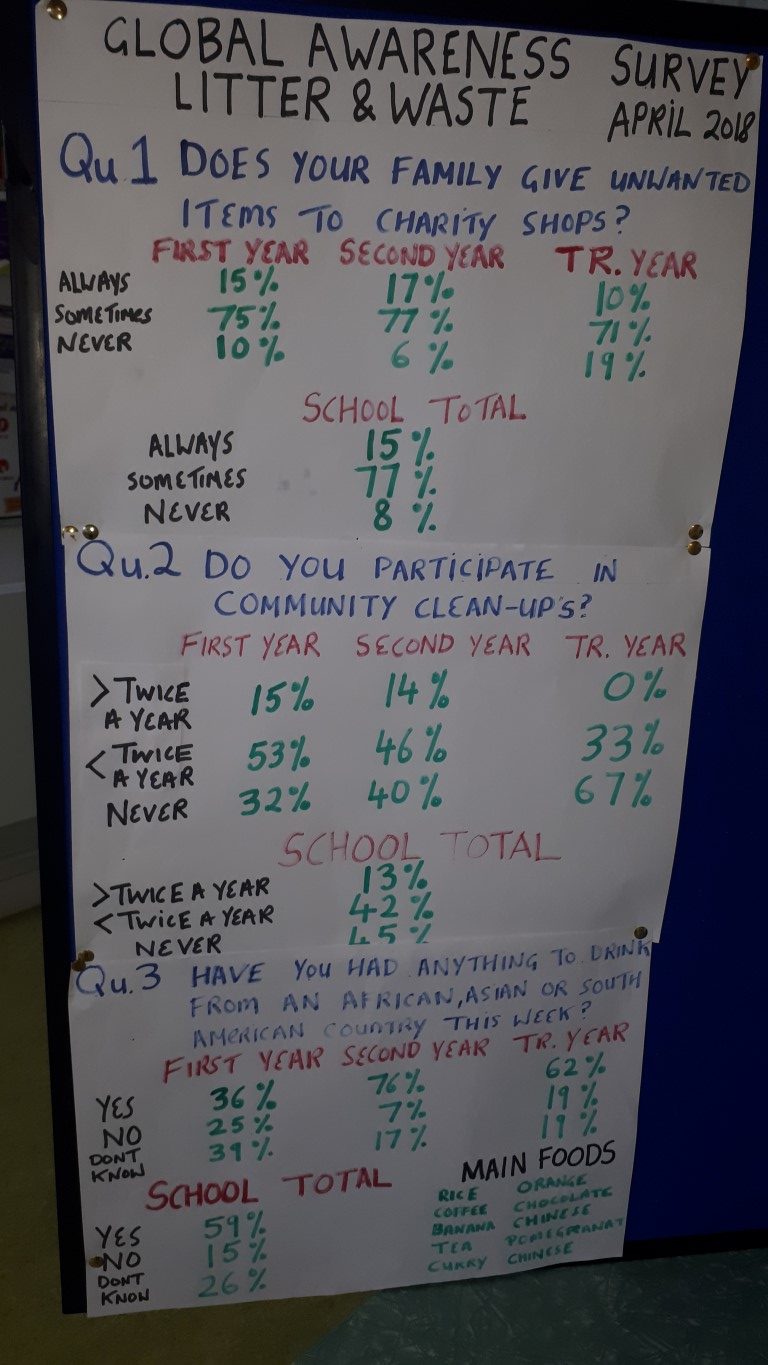 GLOBAL AWARENESS SURVEY
LITTER & WASTE APRIL 2018
Qu.1 DOES YOUR FAMILY GIVE UNWANTED
ITEMS TO CHARITY SHOPS?
FIRST YEAR SECOND YEAR TR. YEAR
ALWAYS 15% 17% 10%
SOMETIMES 75% 77% 71%
NEVER 10% 6% 19%
SCHOOL TOTAL
ALWAYS 15%
SOMETIMES 77%
NEVER 8%
Qu.2 DO YOU PARTICIPATE IN
COMMUNITY CLEAN-UP'S?
FIRST YEAR SECOND YEAR TR. YEAR
>TWICE A YEAR 15% 14% 0%
<TWICE A YEAR 53% 46% 33%
NEVER 32% 40% 67%
SCHOOL TOTAL
>TWICE A YEAR 13%
<TWICE A YEAR 42%
NEVER 45%
Qu.3 HAVE YOU HAD ANYTHING TO DRINK
FROM AN AFRICAN, ASIAN OR SOUTH
AMERICAN COUNTRY THIS WEEK?
FIRST YEAR SECOND YEAR TR. YEAR
YES 36% 76% 62%
NO 25% 7% 19%
DONT KNOW 39% 17% 19%
SCHOOL TOTAL
YES 59%
NO 15%
DONT KNOW 26%
MAIN FOODS
RICE ORANGE
COFFEE CHOCOLATE
BANANA CHINESE
TEA POMEGRANAT
CURRY CHINESE